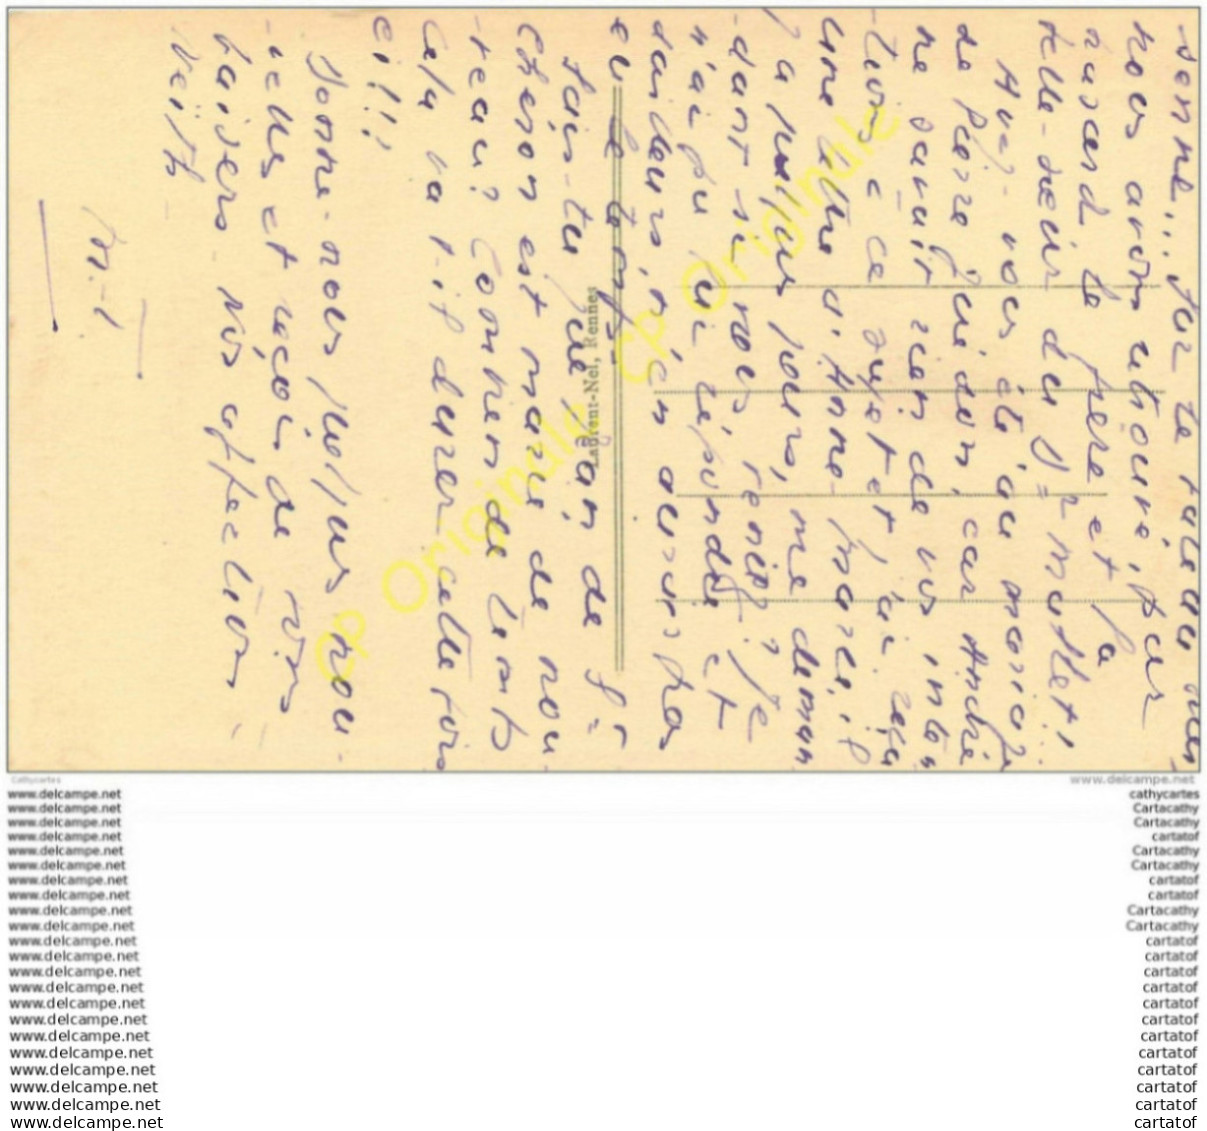 sonne... Sur le bateau nous
nous avons retrouvé, par
hasard le frère et la
belle-sœur du
Avez-vous été au mariage
de Pierre car André
ne savait rien de vos inten
-tions à ce sujet et j'ai reçu
une lettre d'Anne-Marie, il
y a quelques jours, me deman
-dant si vous veniez? Je
n'ai pu lui répondre et
d'ailleurs n'en aurais pas
eu le temps.
Sais-tu que Jean de
est marié de nou
-veau? Combien de temps
cela va-t-il durer cette fois
ci!!!
Donne-nous quelques nou-
-velles et reçois de nous
baisers Nos affection
M-
Laurent-Nel, Rennes
CP Originale
CP Originale
CP Originale
Cathycartes
www.delcampe.net
www.delcampe.net cathycartes
www.delcampe.net Cartacathy
www.delcampe.net Cartacathy
www.delcampe.net cartatof
www.delcampe.net Cartacathy
www.delcampe.net Cartacathy
www.delcampe.net cartatof
www.delcampe.net cartatof
www.delcampe.net Cartacathy
www.delcampe.net Cartacathy
www.delcampe.net cartatof
www.delcampe.net cartatof
www.delcampe.net cartatof
www.delcampe.net cartatof
www.delcampe.net cartatof
www.delcampe.net cartatof
www.delcampe.net cartatof
www.delcampe.net cartatof
www.delcampe.net cartatof
www.delcampe.net cartatof
www.delcampe.net cartatof
www.delcampe.net cartatof